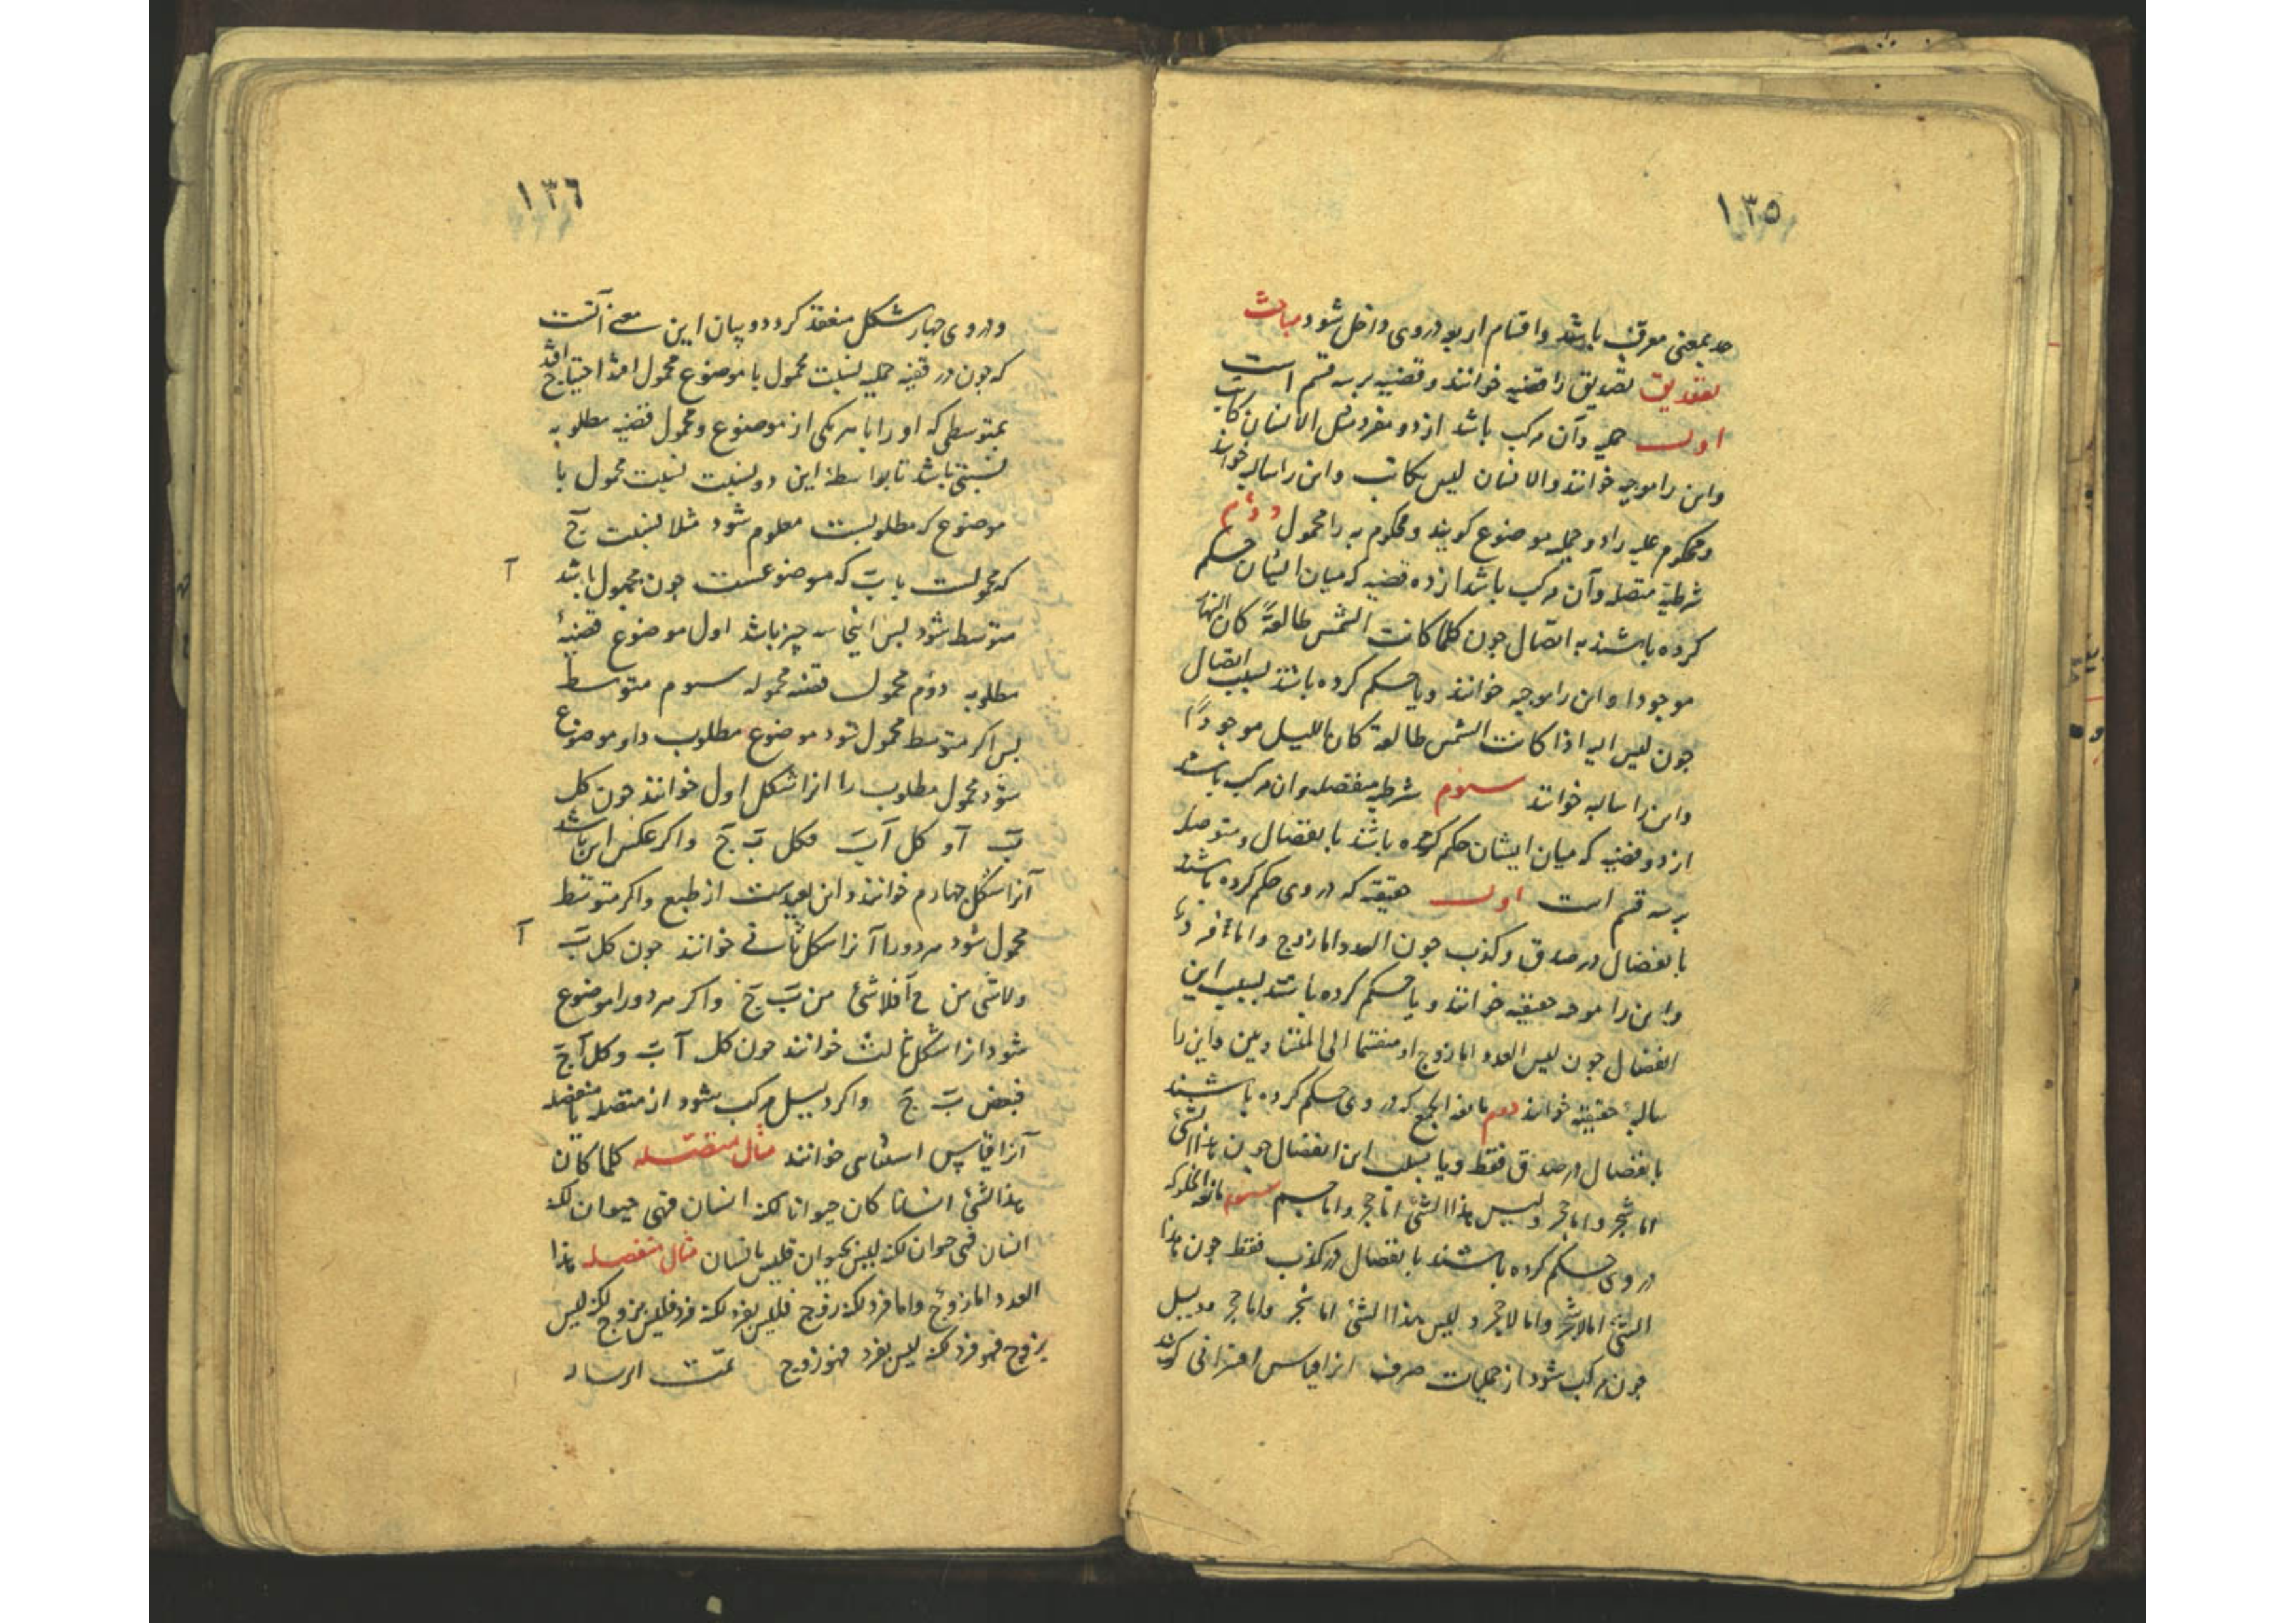 ١٣٥
حد بمعنی معرف باشد واقسام اربعه دروی داخل شود مباحث
تصدیق تصدیق را قضیه خوانند و قضیه بر سه قسم است
اول حملیه و آن مرکب باشد از دو مفرد مثل الانسان کاتب
واین را موجبه خوانند والانسان لیس بکاتب واین را سالبه خوانند
ومحکوم علیه را در حملیه موضوع کویند ومحکوم به را محمول دوم
شرطیة متصله وآن مرکب باشد از دو قضیه که میان ایشان حکم
کرده باشند به اتصال جون کلما کانت الشمس طالعة کان النهار
موجودا واین را موجبه خوانند ویا حکم کرده باشند بسلب اتصال
جون لیس البه اذا کانت الشمس طالعة کان اللیل موجودا
واین را سالبه خوانند سوم شرطیه منفصله وان مرکب باشد
از دو قضیه که میان ایشان حکم کرده باشند بانفصال و
بر سه قسم است اول حقیقیه که در وی حکم کرده باشند
بانفصال در صدق وکذب جون العدد اما زوج واما فرد
واین را موجبه حقیقیه خوانند ویا حکم کرده باشند بسلب این
انفصال جون لیس العدد اما زوج او منقسما الی المتساویین واین را
سالبهٔ حقیقیه خوانند دوم مانعة الجمع که در وی حکم کرده باشند
بانفصال در صدق فقط ویا بسلب این انفصال جون هذا الشئ
اما شجر واما حجر ولیس هذا الشئ اما حجر واما جسم سوم مانعة الخلو که
در وی حکم کرده باشند بانفصال در کذب فقط جون هذا
الشئ اما لاشجر واما لاحجر و لیس هذا الشئ اما شجر واما حجر ودلیل
جون مرکب شود از حملیات صرف انرا قیاس اقترانی کویند
١٣٦
ودر وی جهار شکل منعقد کردد و بیان این معنی آنست
که جون در قضیه حملیه نسبت محمول با موضوع مجهول احتیاج افتد
بمتوسطی که او را با هر یکی از موضوع ومحمول قضیه مطلوبه
نسبتی باشد تا بواسطهٔ این دو نسبت نسبت محمول با
موضوع که مطلوبست معلوم شود مثلا نسبت ج
که محمولست با ب که موضوعست جون مجهول باشد آ
متوسط شود بس اینجا سه چیز باشد اول موضوع قضیهٔ
مطلوبه دوم محمول قضیه سوم متوسط
بس اکر متوسط محمول شود موضوع مطلوب را وموضوع
شود محمول مطلوب را انرا شکل اول خوانند جون کل
ب آ و کل آ ج فکل ب ج واکر عکس این باشد
آنرا شکل جهارم خوانند واین بعیدست از طبع واکر متوسط
محمول شود هر دو را آنرا شکل ثانی خوانند جون کل ب آ
ولاشئ من ج آ فلاشئ من ب ج واکر هر دو را موضوع
شود انرا شکل ثالث خوانند جون کل آ ب وکل آ ج
فبعض ب ج واکر دلیل مرکب شود از متصله یا منفصله
آنرا قیاس استثنائی خوانند مثال متصله کلما کان
هذا الشئ انسانا کان حیوانا لکنه انسان فهو حیوان لکنه
انسان فهو حیوان لکنه لیس بحیوان فلیس بانسان مثال منفصله هذا
العدد اما زوج واما فرد لکنه زوج فلیس بفرد لکنه فرد فلیس بزوج لکنه لیس
بزوج فهو فرد لکنه لیس بفرد فهو زوج تمت الرساله